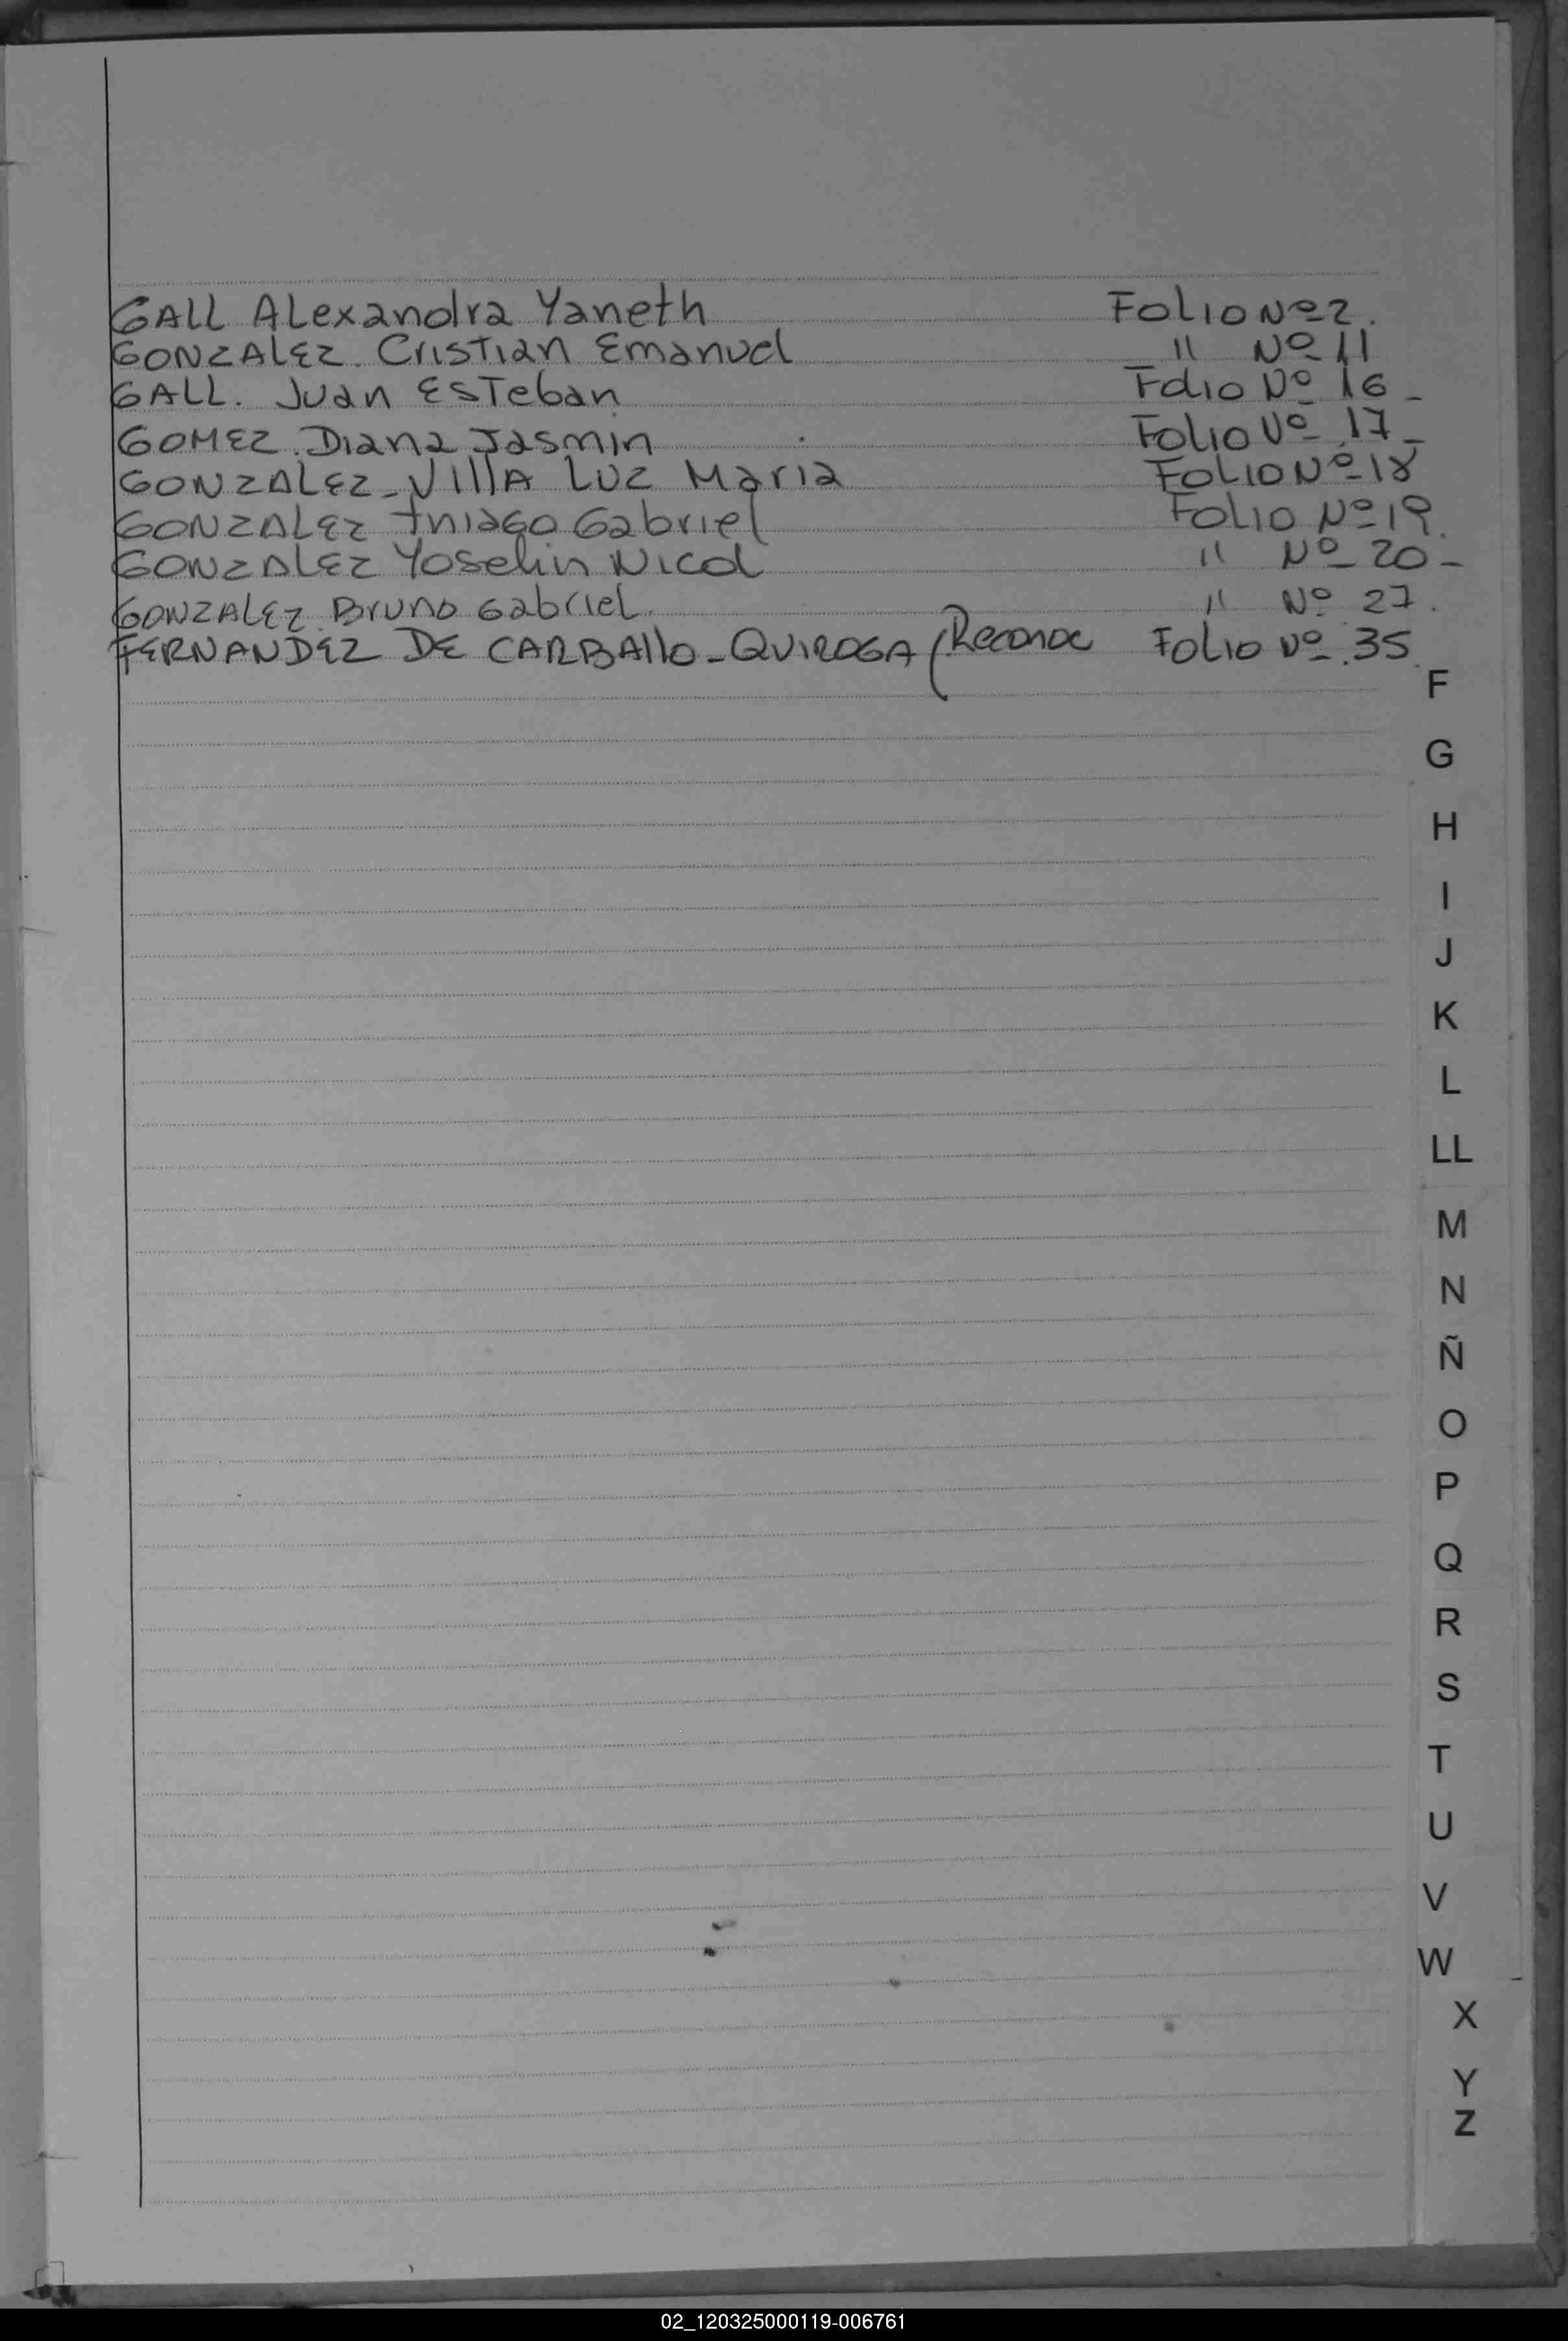 GALL Alexandra Yaneth Folio Nº 2.
GONZALEZ. Cristian Emanuel " Nº 11
GALL. Juan Esteban Folio Nº 16 -
GOMEZ. Diana Jasmin Folio Nº 17 -
GONZALEZ - VIllA LUZ Maria Folio Nº 18
GONZALEZ Thiago Gabriel Folio Nº 19.
GONZALEZ Yoselin Nicol " Nº 20 -
GONZALEZ Bruno Gabriel. " Nº 27.
FERNANDEZ DE CARBAllO - QUIROGA (Reconoc Folio Nº 35
F
G
H
I
J
K
L
LL
M
N
Ñ
O
P
Q
R
S
T
U
V
W
X
Y
Z
02_120325000119-006761